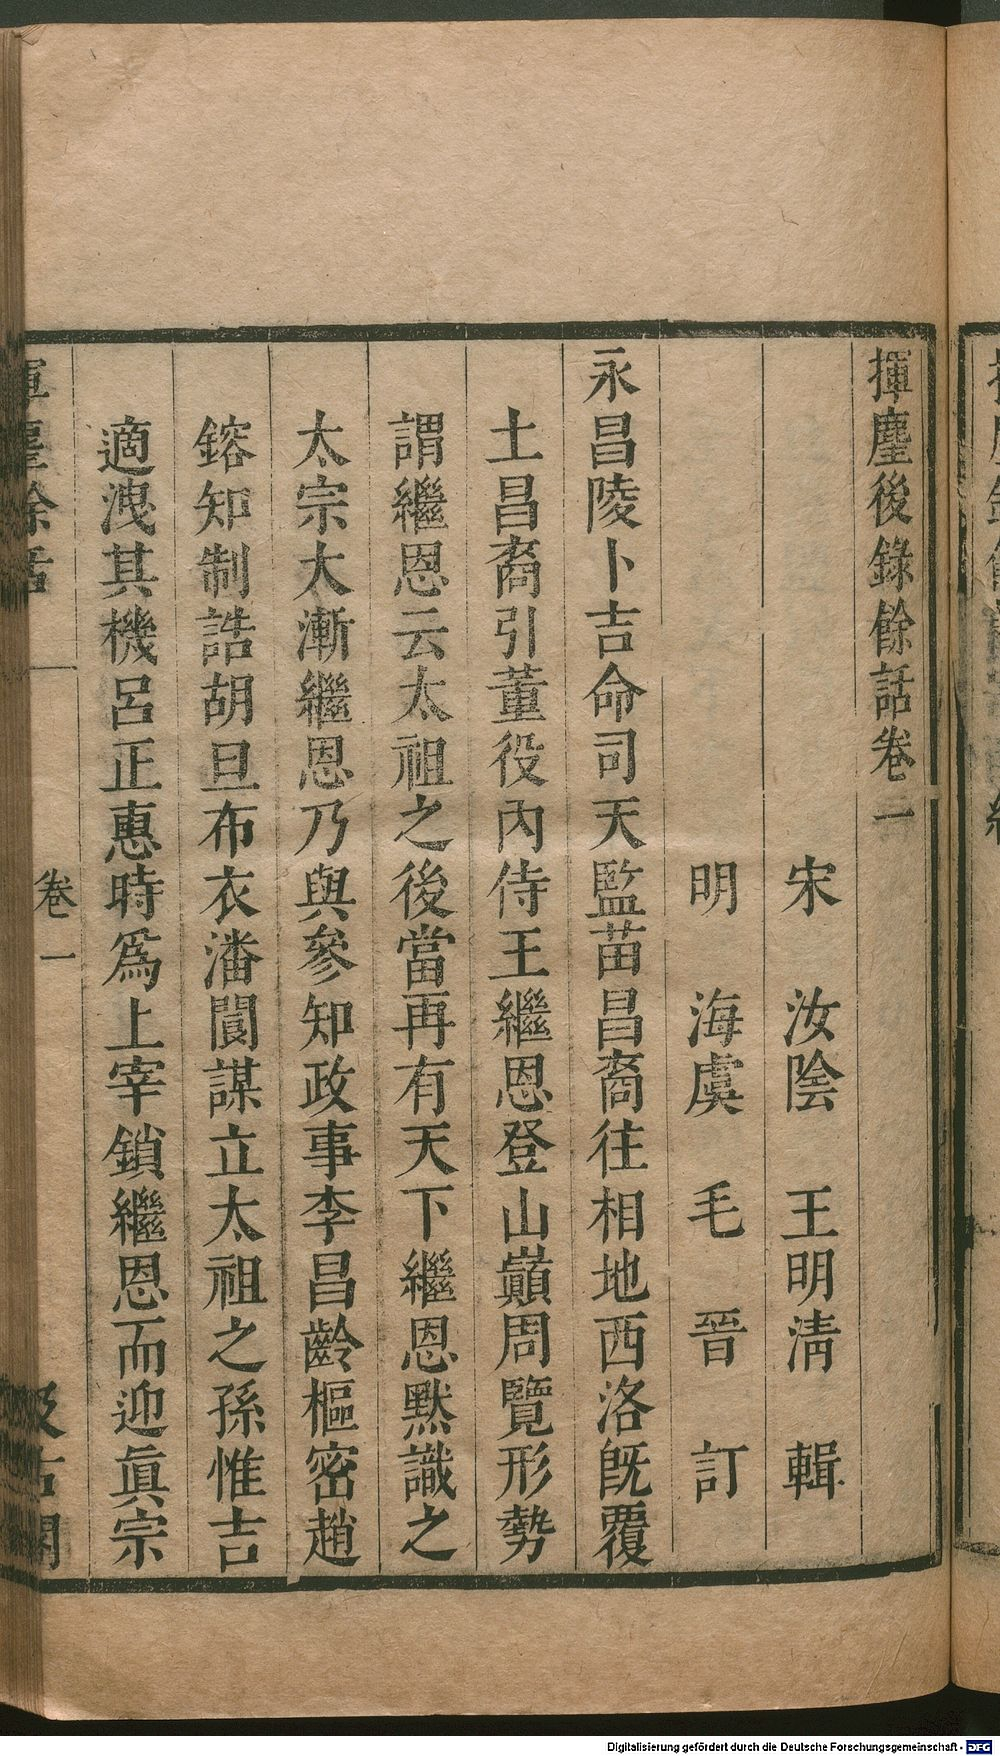 揮麈後錄餘話卷一
宋　汝陰　王明淸　輯
明　海虞　毛　晉　訂
永昌陵卜吉命司天監苗昌裔往相地西洛旣覆
土昌裔引董役內侍王繼恩登山巓周覽形勢
謂繼恩云太祖之後當再有天下繼恩默識之
太宗大漸繼恩乃與參知政事李昌齡樞密趙
鎔知制誥胡旦布衣潘閬謀立太祖之孫惟吉
適洩其機呂正惠時爲上宰鎖繼恩而迎眞宗
揮麈餘話　卷一　汲古閣
Digitalisierung gefördert durch die Deutsche Forschungsgemeinschaft - DFG